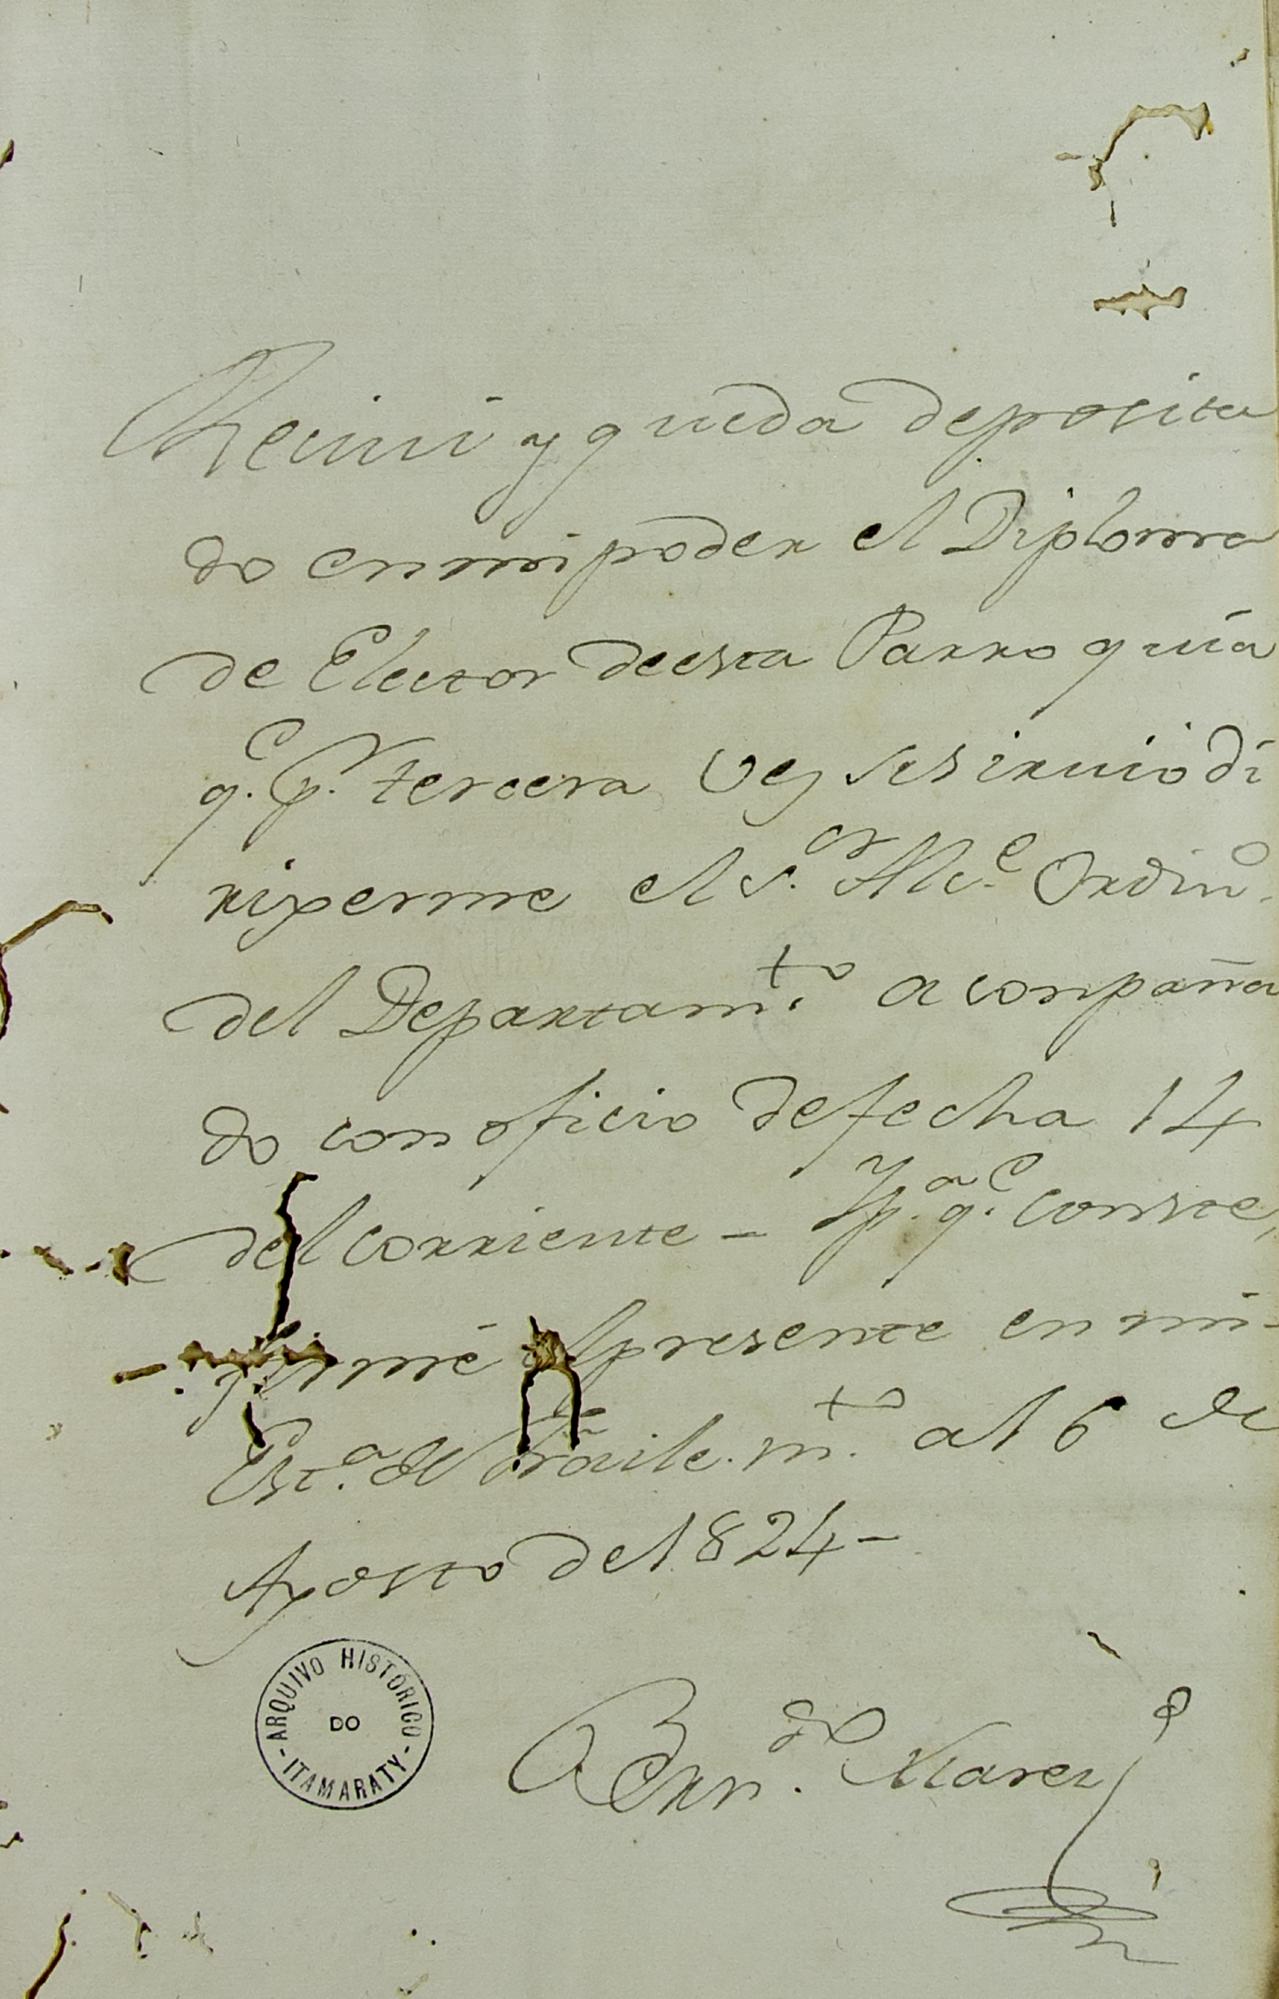 Recivi y queda deposita
do en mi poder el Diploma
de Elector de esta Parroquia
q.e p.r tercera vez se sirvio di
rixerme el S.or Alc.e Ordin.o
del Departam.to aconpaña
do con oficio de fecha 14
del corriente - Y p.a q.e conste,
firmé el presente en mi
Est.a del Fraile m.to a 16 de
Agosto de 1824 -
Bern.do Xarez
ARQUIVO HISTÓRICO
DO
- ITAMARATY -